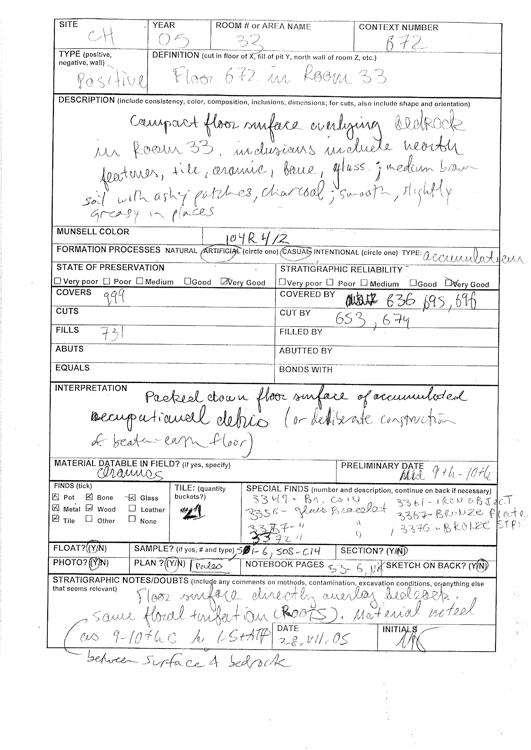 SITE YEAR ROOM # or AREA NAME CONTEXT NUMBER
CH 05 33 672
TYPE (positive, negative, wall) DEFINITION (cut in floor of X, fill of pit Y, north wall of room Z, etc.)
Positive Floor 672 in Room 33
DESCRIPTION (include consistency, color, composition, inclusions, dimensions; for cuts, also include shape and orientation)
Compact floor surface overlying bedrock
in Room 33. inclusions include hearth
features, tile, ceramic, bone, glass; medium brown
soil with ashy patches, charcoal; smooth, slightly
greasy in places
MUNSELL COLOR 10YR 4/2
FORMATION PROCESSES NATURAL ARTIFICIAL (circle one) CASUAL INTENTIONAL (circle one) TYPE: accumulation
STATE OF PRESERVATION STRATIGRAPHIC RELIABILITY
Very poor Poor Medium Good Very Good Very poor Poor Medium Good Very Good
COVERS 999 COVERED BY 636 695, 696
CUTS CUT BY 653, 674
FILLS 731 FILLED BY
ABUTS ABUTTED BY
EQUALS BONDS WITH
INTERPRETATION Packed down floor surface of accumulated
occupational debris (or deliberate construction
of beaten earth floor)
MATERIAL DATABLE IN FIELD? (if yes, specify) PRELIMINARY DATE Mid 9th-10th
ceramics
FINDS (tick) TILE: (quantity buckets?) SPECIAL FINDS (number and description, continue on back if necessary)
Pot Bone Glass 3349-Br. COIN 3361-IRON OBJECT
Metal Wood Leather glass Bracelet 3367-BRONZE Plate
Tile Other None 3372-" , 3376-BRONZE
FLOAT? (Y/N) SAMPLE? (if yes, # and type) 501-6, 508-C14 SECTION? (Y/N)
PHOTO? (Y/N) PLAN? (Y/N) NOTEBOOK PAGES 55-6, SKETCH ON BACK? (Y/N)
STRATIGRAPHIC NOTES/DOUBTS (include any comments on methods, contamination, excavation conditions, or anything else that seems relevant)
Floor surface directly overlay bedrock.
Some floral turbation (ROOTS). Material noted
as 9-10th C by DATE 28.VII.05 INITIALS
between surface & bedrock